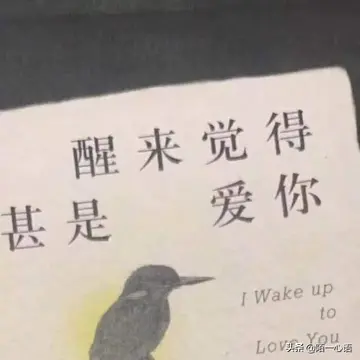 醒来觉得
甚是 爱你
I Wake up
to
Love You
头条 @陌一心语